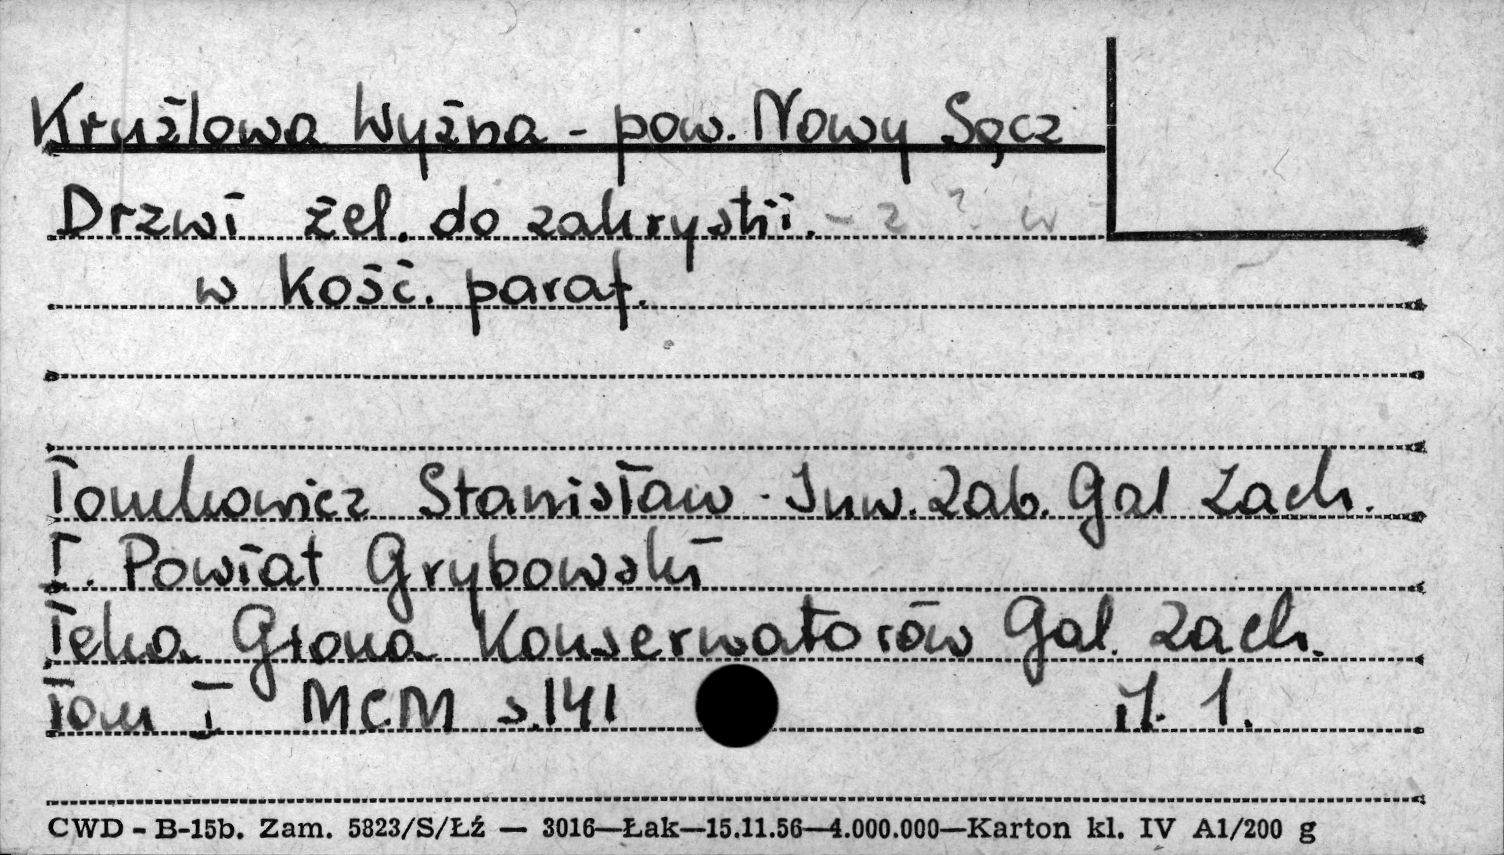 Krużlowa Wyżna - pow. Nowy Sącz
Drzwi żel. do zakrystii. - z ? w
w kość. paraf.
Tomkowicz Stanisław - Inw. Zab. Gal Zach.
I. Powiat Grybowski
Teka Grona Konserwatorów Gal. Zach.
Tom I MCM s.141 il. 1.
CWD - B-15b. Zam. 5823/S/Łź — 3016—Łak—15.11.56—4.000.000—Karton kl. IV A1/200 g